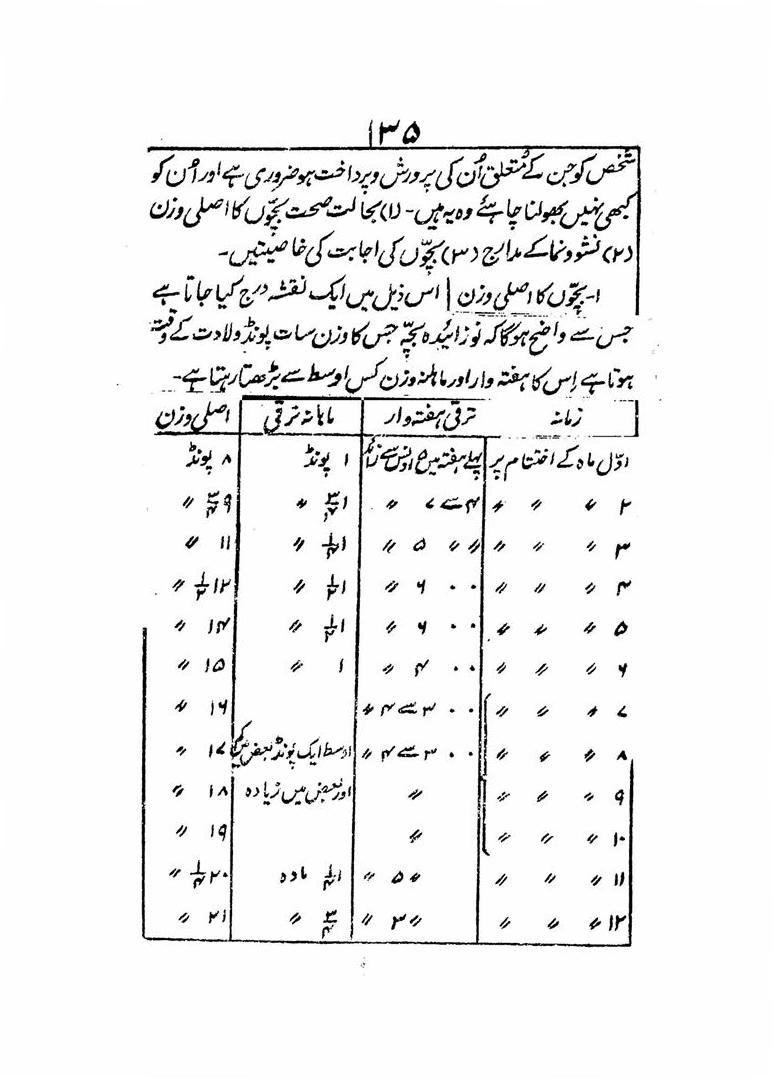 ۱۳۵
شخص کو جن کے متعلق اُن کی پرورش و پرداخت ہو ضروری ہے اور اُن کو
کبھی نہیں بھولنا چاہئے وہ یہ ہیں۔ (۱) بحالت صحت بچّوں کا اصلی وزن
(۲) نشوونما کے مدارج (۳) بچّوں کی اجابت کی خاصیتیں۔
۱۔ بچّوں کا اصلی وزن | اس ذیل میں ایک نقشہ درج کیا جاتا ہے
جس سے واضح ہوگا کہ نوزائیدہ بچّہ جس کا وزن سات پونڈ ولادت کے وقت
ہوتا ہے اِس کا ہفتہ وار اور ماہانہ وزن کس اوسط سے بڑھتا رہتا ہے۔
زمانہ ترقی ہفتہ وار ماہانہ ترقی اصلی وزن
اوّل ماہ کے اختتام پر پہلے ہفتہ میں اونس سے زائد ۱ پونڈ ۸ پونڈ
۲ 〃 〃 〃 ۴ سے ۷ 〃 ۱ ۳/۴ 〃 ۹ ۳/۴ 〃
۳ 〃 〃 〃 〃 〃 ۵ 〃 ۱ ۱/۴ 〃 ۱۱ 〃
۴ 〃 〃 〃 ۰۰ ۶ 〃 ۱ ۱/۲ 〃 ۱۲ ۱/۲ 〃
۵ 〃 〃 〃 ۰۰ ۶ 〃 ۱ ۱/۲ 〃 ۱۴ 〃
۶ 〃 〃 〃 ۰۰ ۴ 〃 ۱ 〃 ۱۵ 〃
۷ 〃 〃 〃 ۰۰ ۳ سے ۴ 〃 ۱۶ 〃
۸ 〃 〃 〃 ۰۰ ۳ سے ۴ 〃 اوسط ایک پونڈ بعض میں کم ۱۷ 〃
۹ 〃 〃 〃 〃 اور بعض میں زیادہ ۱۸ 〃
۱۰ 〃 〃 〃 〃 ۱۹ 〃
۱۱ 〃 〃 〃 〃 ۵ 〃 ۱ ۱/۴ مادہ ۲۰ ۱/۴ 〃
۱۲ 〃 〃 〃 〃 ۳ 〃 ۳/۴ 〃 ۲۱ 〃